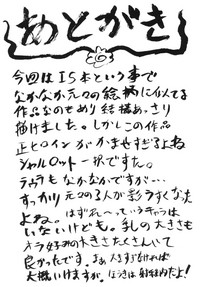 あとがき
今回はIS本という事で
なかなか元々の絵柄に似てる
作品なのもあり結構あっさり
描けました。しかしこの作品
正ヒロインがかませすぎるよね
シャルロット一択ですた。
ラウラもなかなかですが…
すっかり元々の3人が影うすくなった
よね。はずれ〜っていうキャラは
いないけども。乳の大きさも
オラ好みの大きさたくさんいて
良かったです。まぁ人さすがければ
大概いけますが。ほうきは射程内だよ!